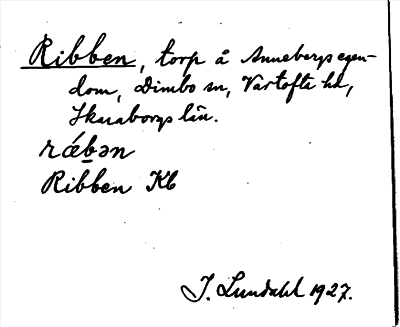 Ribben, torp å Annebergs egen-
dom, Dimbo sn, Vartofta hd,
Skaraborgs län.
rǽbən
Ribben Kb
J. Lundahl 1927.